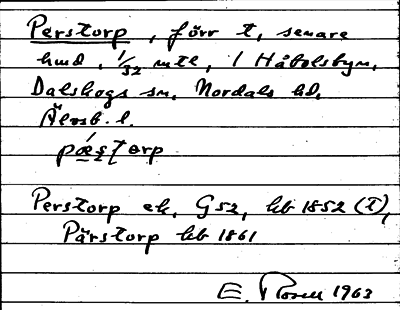 Perstorp, förr t, senare
hmd, 1/32 mtl, i Håbolsbyn,
Dalskogs sn, Nordals hd,
Älvsb. l.
pæ̀ștorp
Perstorp ek, G52, hb 1852 (T),
Pärstorp hb 1861
E. Rosell 1963